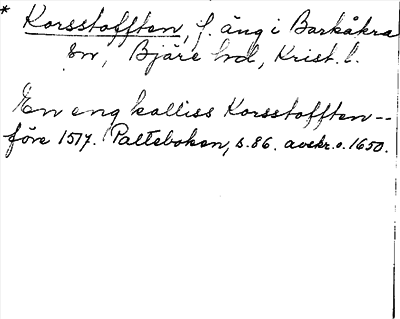 * Korsstofften, f. äng i Barkåkra
sn, Bjäre hd, Krist. l.
En eng kalliss Korsstofften --
före 1517. Palteboken, s. 86. avskr. o. 1650.